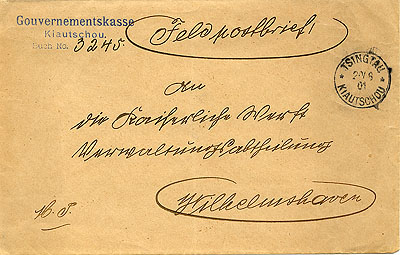 Gouvernementskasse
Kiautschou.
Buch No. 3245.
Feldpostbrief!
TSINGTAU
KIAUTSCHOU
01
An
die Kaiserliche Werft
Verwaltungsabtheilung
Wilhelmshaven